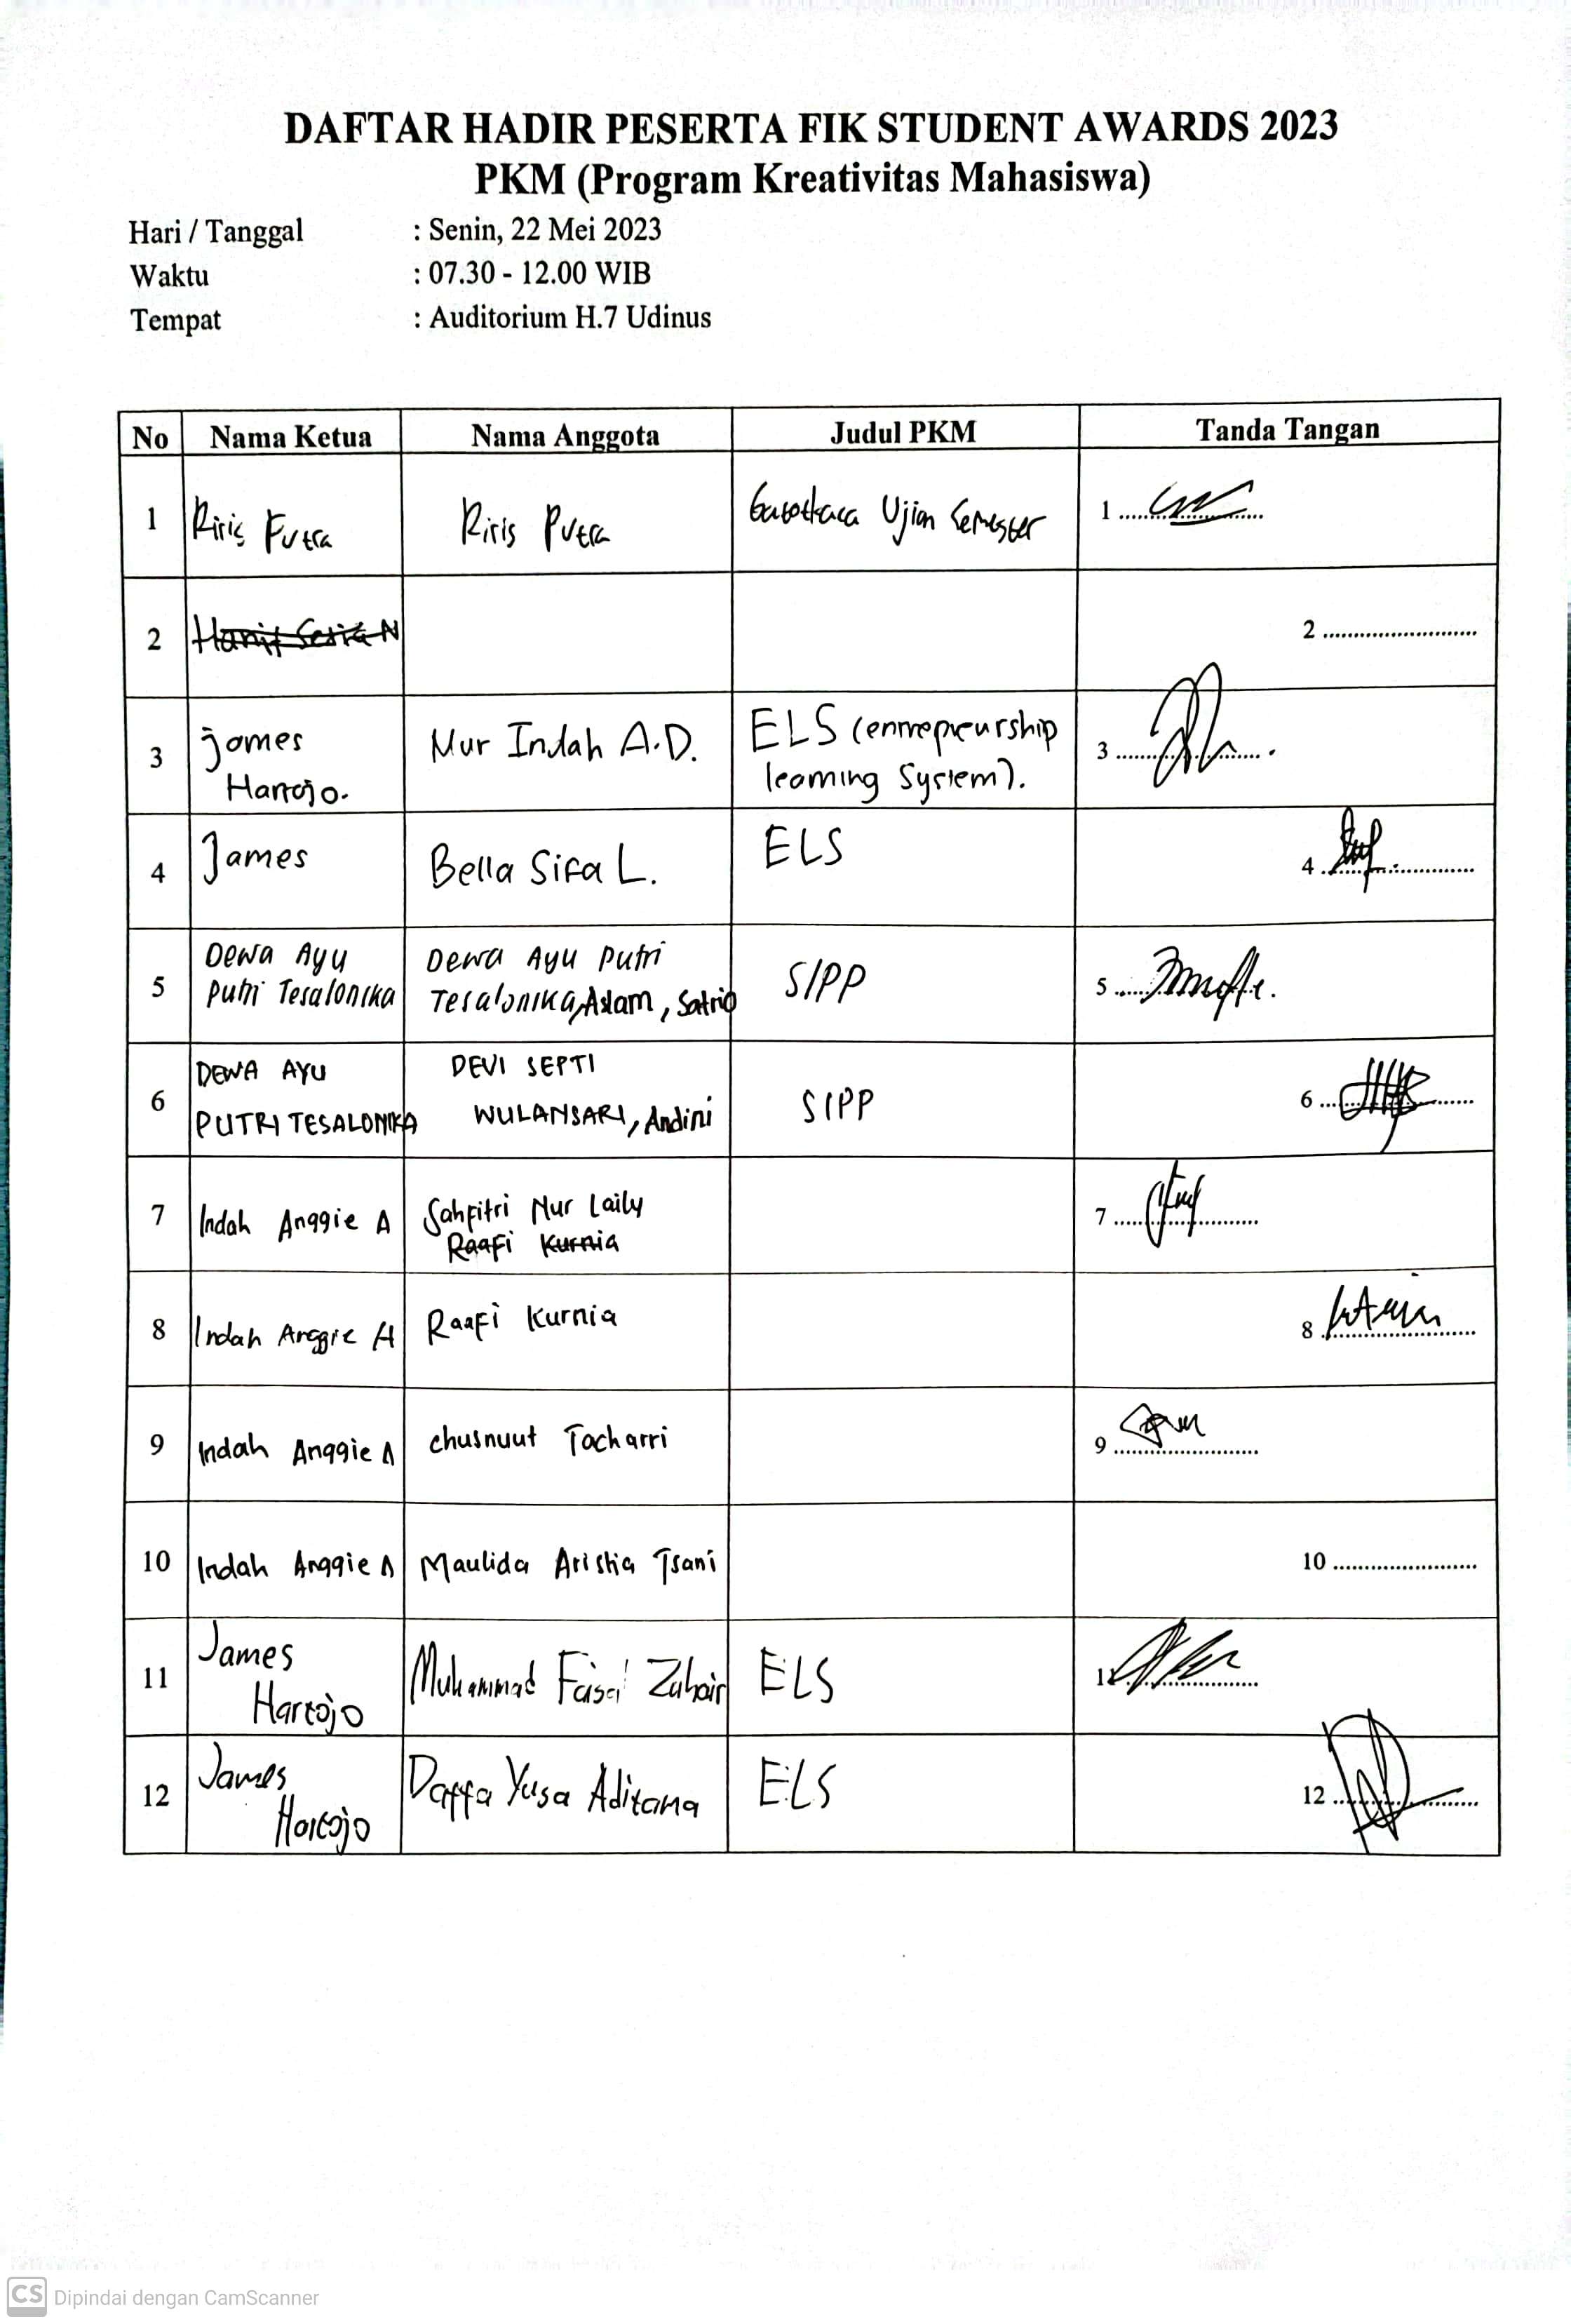 DAFTAR HADIR PESERTA FIK STUDENT AWARDS 2023
PKM (Program Kreativitas Mahasiswa)
Hari / Tanggal : Senin, 22 Mei 2023
Waktu : 07.30 - 12.00 WIB
Tempat : Auditorium H.7 Udinus
No Nama Ketua Nama Anggota Judul PKM Tanda Tangan
1 Riris Putra Riris Putra Ujian Semester 1
2 Hanif Setia N 2
3 james Nur Indah A.D. ELS (enrrepreurship 3
Hartojo. learning System).
4 James Bella Sifa L. ELS 4
5 Dewa Ayu Dewa Ayu Putri SIPP 5
Putri Tesalonika Tesalonika, Aslam, Satrio
6 DEWA AYU DEVI SEPTI SIPP 6
PUTRI TESALONIKA WULANSARI, Andini
7 Indah Anggie A Sahfitri Nur Laily 7
Raafi Kurnia
8 Indah Anggie A Raafi Kurnia 8
9 Indah Anggie A chusnuut Tacharri 9
10 Indah Anggie A Maulida Aristia Tsani 10
11 James Muhammad Faisal Zuhair ELS 11
Hartojo
12 James Daffa Yusa Aditama ELS 12
Hartojo
CS Dipindai dengan CamScanner